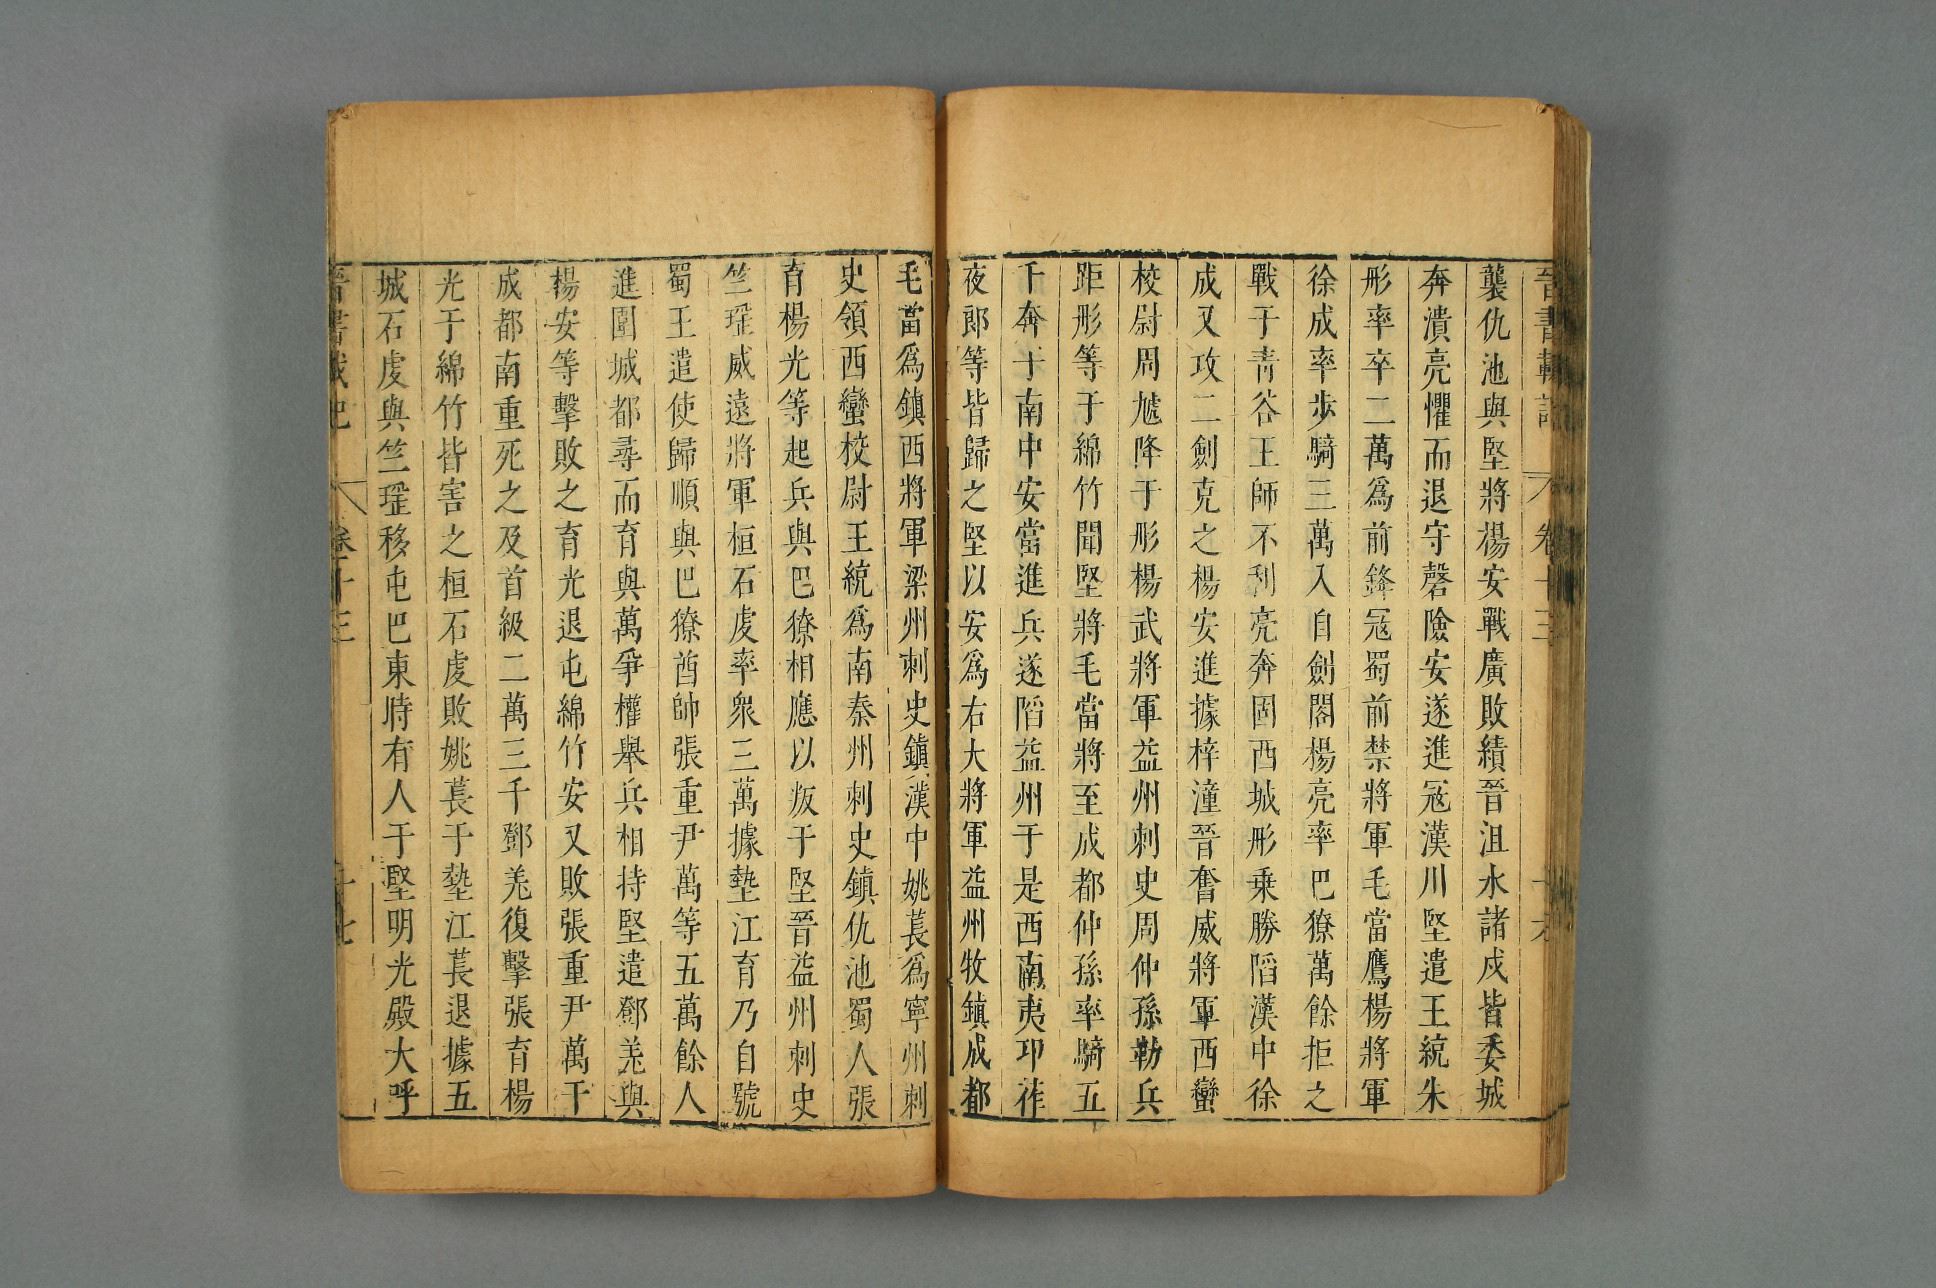 晉書載記 卷十三 十六
襲仇池與堅將楊安戰廣敗績晉沮水諸戍皆委城
奔潰亮懼而退守磬險安遂進寇漢川堅遣王統朱
彤率卒二萬爲前鋒寇蜀前禁將軍毛當鷹楊將軍
徐成率步騎三萬入自劍閣楊亮率巴獠萬餘拒之
戰于青谷王師不利亮奔固西城彤乗勝陷漢中徐
成又攻二劍克之楊安進據梓潼晉奮威將軍西蠻
校尉周虓降于彤楊武將軍益州刺史周仲孫勒兵
距彤等于綿竹聞堅將毛當將至成都仲孫率騎五
千奔于南中安當進兵遂陷益州于是西南夷邛莋
夜郎等皆歸之堅以安爲右大將軍益州牧鎮成都
毛當爲鎮西將軍梁州刺史鎮漢中姚萇爲寧州刺
史領西蠻校尉王統爲南秦州刺史鎮仇池蜀人張
育楊光等起兵與巴獠相應以叛于堅晉益州刺史
竺瑤威遠將軍桓石虔率衆三萬據墊江育乃自號
蜀王遣使歸順與巴獠酋帥張重尹萬等五萬餘人
進圍成都尋而育與萬爭權舉兵相持堅遣鄧羌與
楊安等擊敗之育光退屯綿竹安又敗張重尹萬于
成都南重死之及首級二萬三千鄧羌復擊張育楊
光于綿竹皆害之桓石虔敗姚萇于墊江萇退據五
城石虔與竺瑤移屯巴東時有人于堅明光殿大呼
晉書載記 卷十三 十七